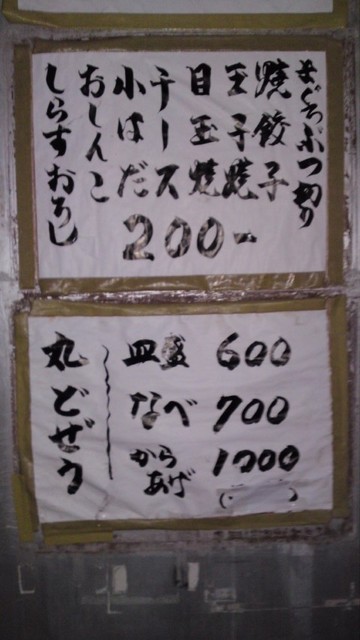 まぐろぶつ切り
焼餃子
玉子焼
目玉焼
チーズ
小はだ
おしんこ
しらすおろし
200-
丸どぜう
皿盛 600
なべ 700
からあげ 1000